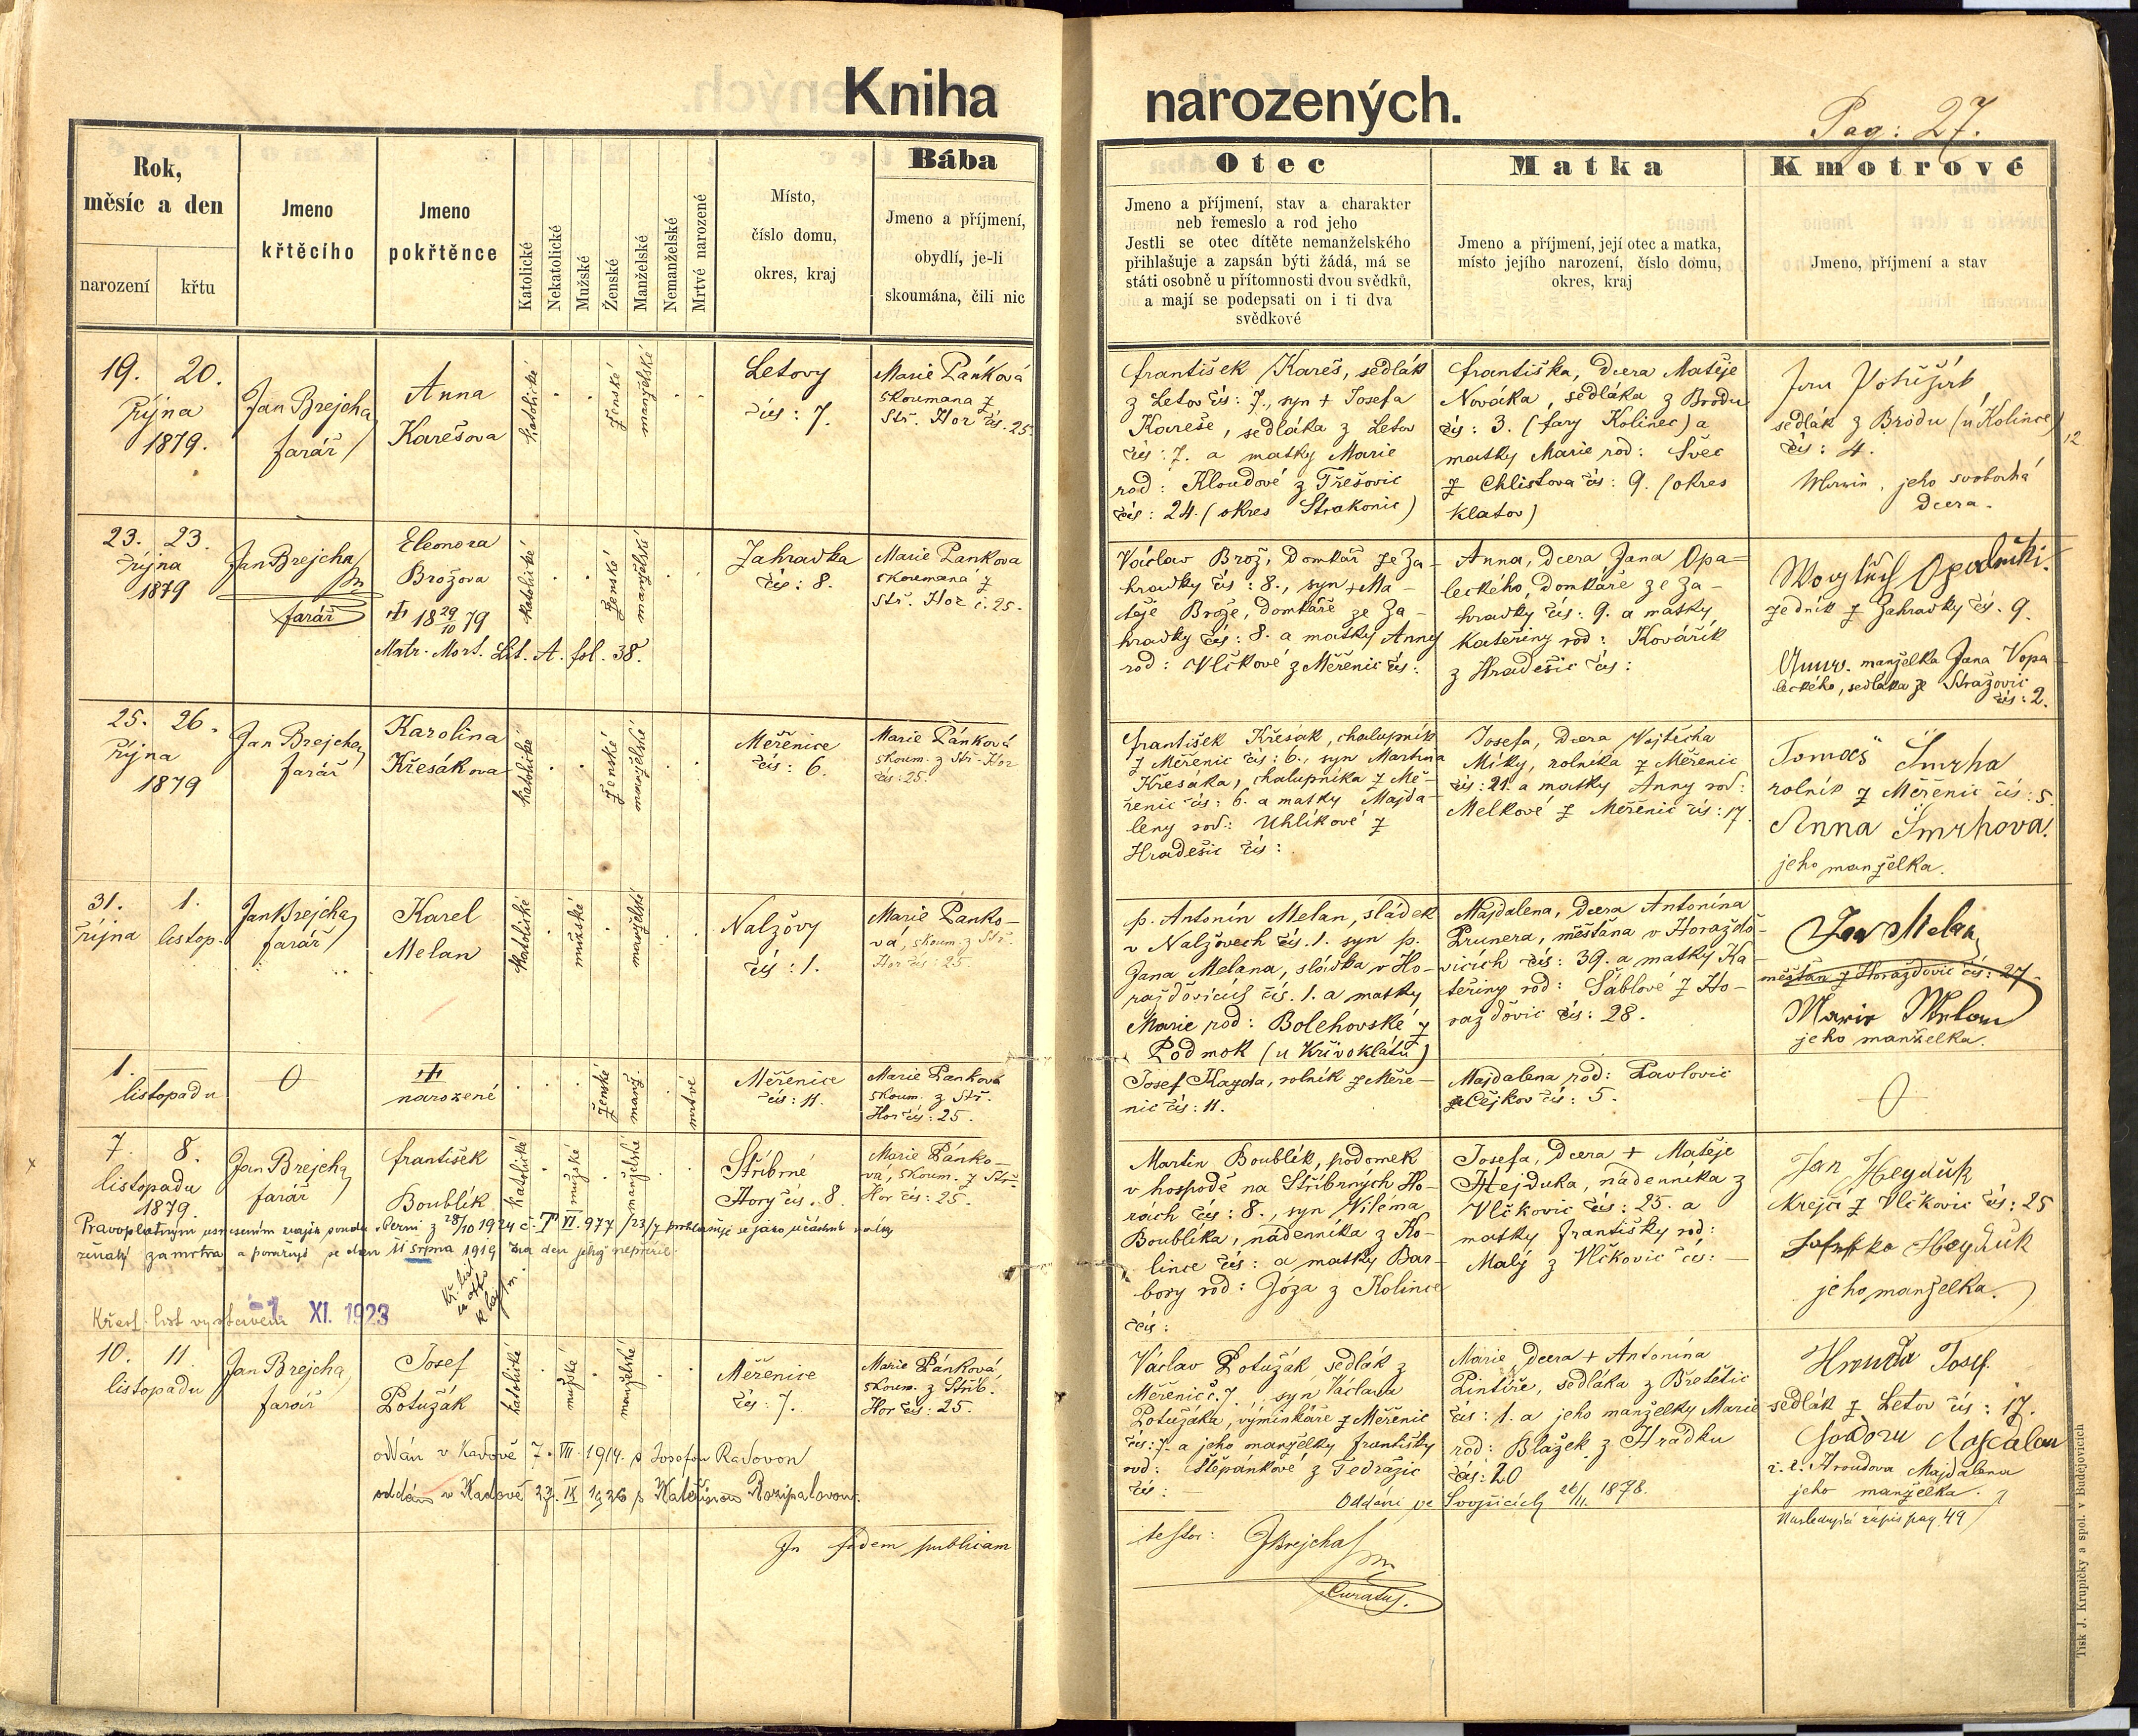 Kniha narozených.
Pag: 27.
Rok,
měsíc a den
narození
křtu
Jmeno
křtěcího
Jmeno
pokřtěnce
Katolické
Nekatolické
Mužské
Ženské
Manželské
Nemanželské
Mrtvé narozené
Místo,
číslo domu,
okres, kraj
Bába
Jmeno a příjmení,
obydlí, je-li
skoumána, čili nic
Otec
Jmeno a příjmení, stav a charakter
neb řemeslo a rod jeho
Jestli se otec dítěte nemanželského
přihlašuje a zapsán býti žádá, má se
státi osobně u přítomnosti dvou svědků,
a mají se podepsati on i ti dva
svědkové
Matka
Jmeno a příjmení, její otec a matka,
místo jejího narození, číslo domu,
okres, kraj
Kmotrové
Jmeno, příjmení a stav
19. 20.
října
1879.
Jan Brejcha
farář
Anna
Karešova
katolické
ženské
manželské
Letovy
čís: 7.
Marie Pánková
skoumana z
Stř. Hor čís. 25.
František Kareš, sedlák
z Letov čís: 7., syn + Josefa
Kareše, sedláka z Letov
čís: 7. a matky Marie
rod: Kloudové z Třešovic
čís: 24. (okres Strakonic)
Františka, dcera Matěje
Nováka, sedláka z Brodu
čís: 3. (fary Kolinec) a
matky Marie rod: Švec
z Chlistova čís: 9. (okres
Klatov)
sedlák z Brodu (u Kolince)
čís: 4.
jeho svobodná
dcera.
12
23. 23.
října
1879
Jan Brejcha
farář
Eleonora
Brožova
+ 18 29/10 79
Matr. Mort. Lit. A. fol. 38.
katolické
ženské
manželské
Zahradka
čís: 8.
Marie Pankova
skoumaná z
Stř. Hor č. 25.
Václav Brož, domkář ze Za-
hradky čís: 8., syn + Ma-
těje Brože, domkáře ze Za-
hradky čís: 8. a matky Anny
rod: Vlčkové z Měřenic čís:
Anna, dcera Jana Opa-
leckého, domkáře ze Za-
hradky čís: 9. a matky
Kateřiny rod: Kovářík
z Hradešic čís:
zedník z Zahradky čís. 9.
manželka Jana Vopa-
leckého, sedláka ze Stražovic
čís: 2.
25. 26.
října
1879
Jan Brejcha
farář
Karolina
Křesákova
katolické
ženské
manželské
Měřenice
čís: 6.
Marie Pánková
skoum. z Stř. Hor
čís: 25.
František Křesák, chalupník
z Měřenic čís: 6., syn Martina
Křesáka, chalupníka z Mě-
řenic čís: 6. a matky Majda-
leny rod: Uhlíkové z
Hradešic čís:
Josefa, dcera Vojtěcha
Míky, rolníka z Měřenic
čís: 21. a matky Anny rod:
Melkové z Měřenic čís: 17.
Tomáš Šmrha
rolník z Měřenic čís: 5.
Anna Šmrhova.
jeho manželka.
31. 1.
října listop.
Jan Brejcha
farář
Karel
Melan
katolické
mužské
manželské
Nalžovy
čís: 1.
Marie Panko-
vá, skoum. z Stř.
Hor čís: 25.
p. Antonín Melan, sládek
v Nalžovech čís. 1. syn p.
Jana Melana, sládka v Ho-
raždovicích čís. 1. a matky
Marie rod: Bolehovské z
Podmok (u Křivoklátu)
Majdalena, dcera Antonína
Prunera, měšťana v Horaždo-
vicích čís: 39. a matky Ka-
teřiny rod: Šáblové z Ho-
raždovic čís: 28.
Jan Melan
měšťan z Horaždovic čís: 27.
Marie Melan
jeho manželka.
1.
listopadu
0
+
narozené
ženské
manž.
mrtvé
Měřenice
čís: 11.
Marie Panková
skoum. z Stř.
Hor čís: 25.
Josef Kayda, rolník z Měře-
nic čís: 11.
Majdalena rod: Pavlovic
z Čejkov čís: 5.
0
7. 8.
listopadu
1879.
Jan Brejcha
farář
František
Boublík
katolické
mužské
manželské
Stříbrné
Hory čís. 8.
Marie Pánko-
vá, skoum. z Stř.
Hor čís: 25.
Martin Boublík, podomek
v hospodě na Stříbrných Ho-
rách čís: 8., syn Viléma
Boublíka, nádenníka z Ko-
lince čís: a matky Bar-
bory rod: Józa z Kolince
čís:
Josefa, dcera + Matěje
Hejduka, nádenníka z
Vlčkovic čís: 25. a
matky Františky rod:
Malý z Vlčkovic čís: -
Jan Heyduk
krejčí z Vlčkovic čís: 25
Heyduk
jeho manželka.
Pravoplatným usnesením z 28/10 1924 č. T VI. 977/23/7 prohlašuje se jako účastník války
za mrtva a den 11 srpna 1919 za den jehož nepřežil.
Křest. list vystaven -1. XI. 1923
10. 11.
listopadu
Jan Brejcha
farář
Josef
Potužák
katolické
mužské
manželské
Měřenice
čís: 7.
Marie Pánková
skoum. z Stříb.
Hor čís: 25.
oddán v Kadově 7. VII. 1914. s
oddán v Kadově 27. IX 1926 s Kateřinou
Václav Potužák sedlák z
Měřenic č. 7. syn Václava
Potužáka, výminkáře z Měřenic
čís: 7. a jeho manželky Františky
rod: Štěpánkové z Tedražic
čís: -
Marie, dcera + Antonína
Pintíře, sedláka z Břetětic
čís: 1. a jeho manželky Marie
rod: Blažek z Hrádku
čís: 20
Oddáni ve Svojšicích 26/11. 1878.
Hrouda Josef.
sedlák z Letov čís: 17.
Hroudova Majdalena
jeho manželka.
Následující zápis pag. 49
In fidem publicam
testor: JBrejcha
Curatus.
Tisk J. Krupičky a spol. v Budějovicích